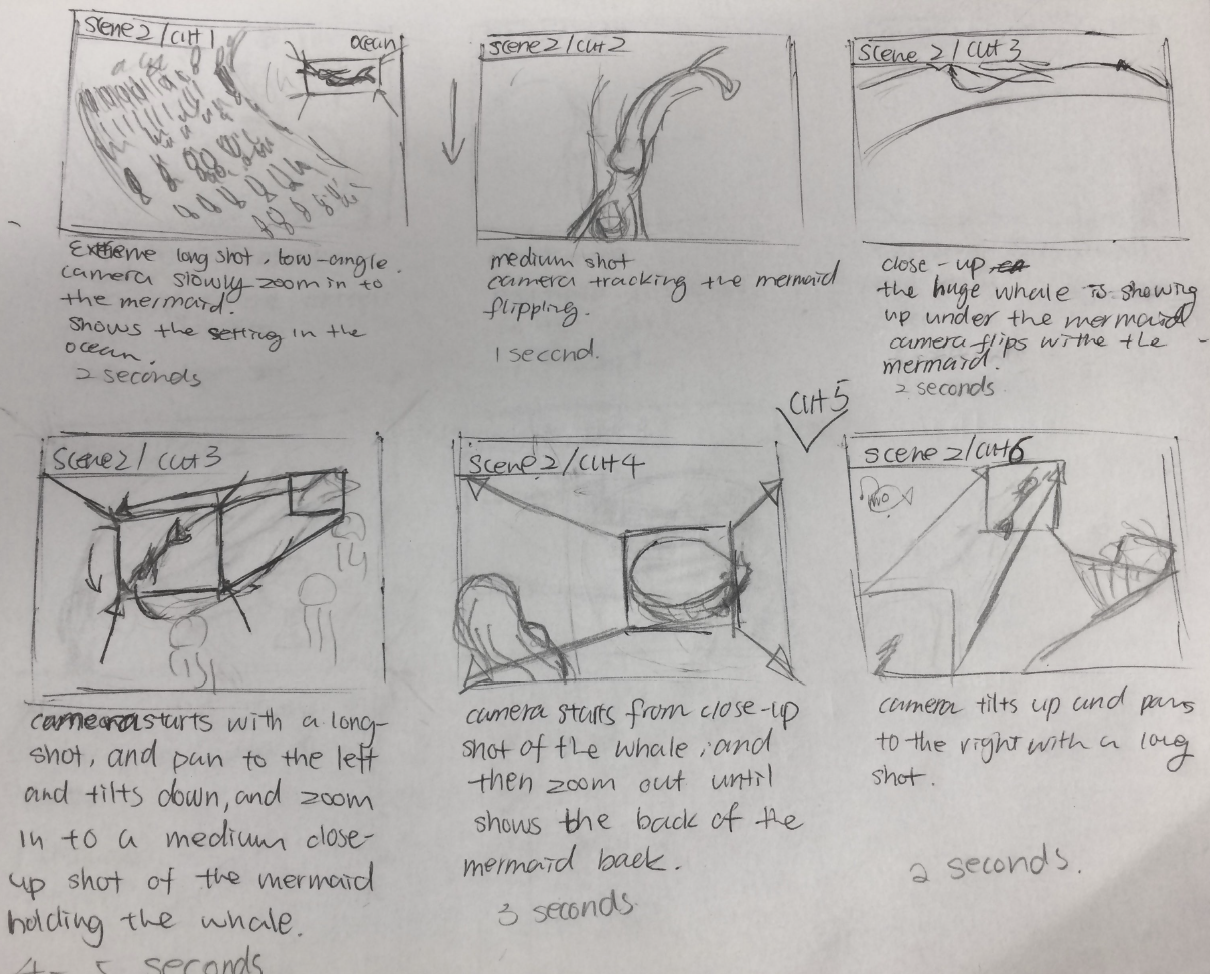 scene 2 / cut 1
ocean
Extreme long shot, low-angle.
camera slowly zoom in to
the mermaid.
shows the setting in the
ocean.
2 seconds
scene 2 / cut 2
medium shot
camera tracking the mermaid
flipping.
1 second.
scene 2 / cut 3
close-up
the huge whale is showing
up under the mermaid
camera flips withe the
mermaid.
2 seconds
scene 2 / cut 3
camera starts with a long-
shot, and pan to the left
and tilts down, and zoom
in to a medium close-
up shot of the mermaid
holding the whale.
4 - 5 seconds
scene 2 / cut 4
camera starts from close-up
shot of the whale, and
then zoom out until
shows the back of the
mermaid back.
3 seconds
cut 5
scene 2 / cut 6
camera tilts up and pans
to the right with a long
shot.
2 seconds.